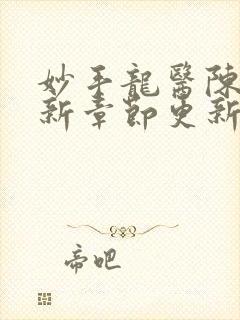 妙手龍醫陳
新章節更新
帝吧